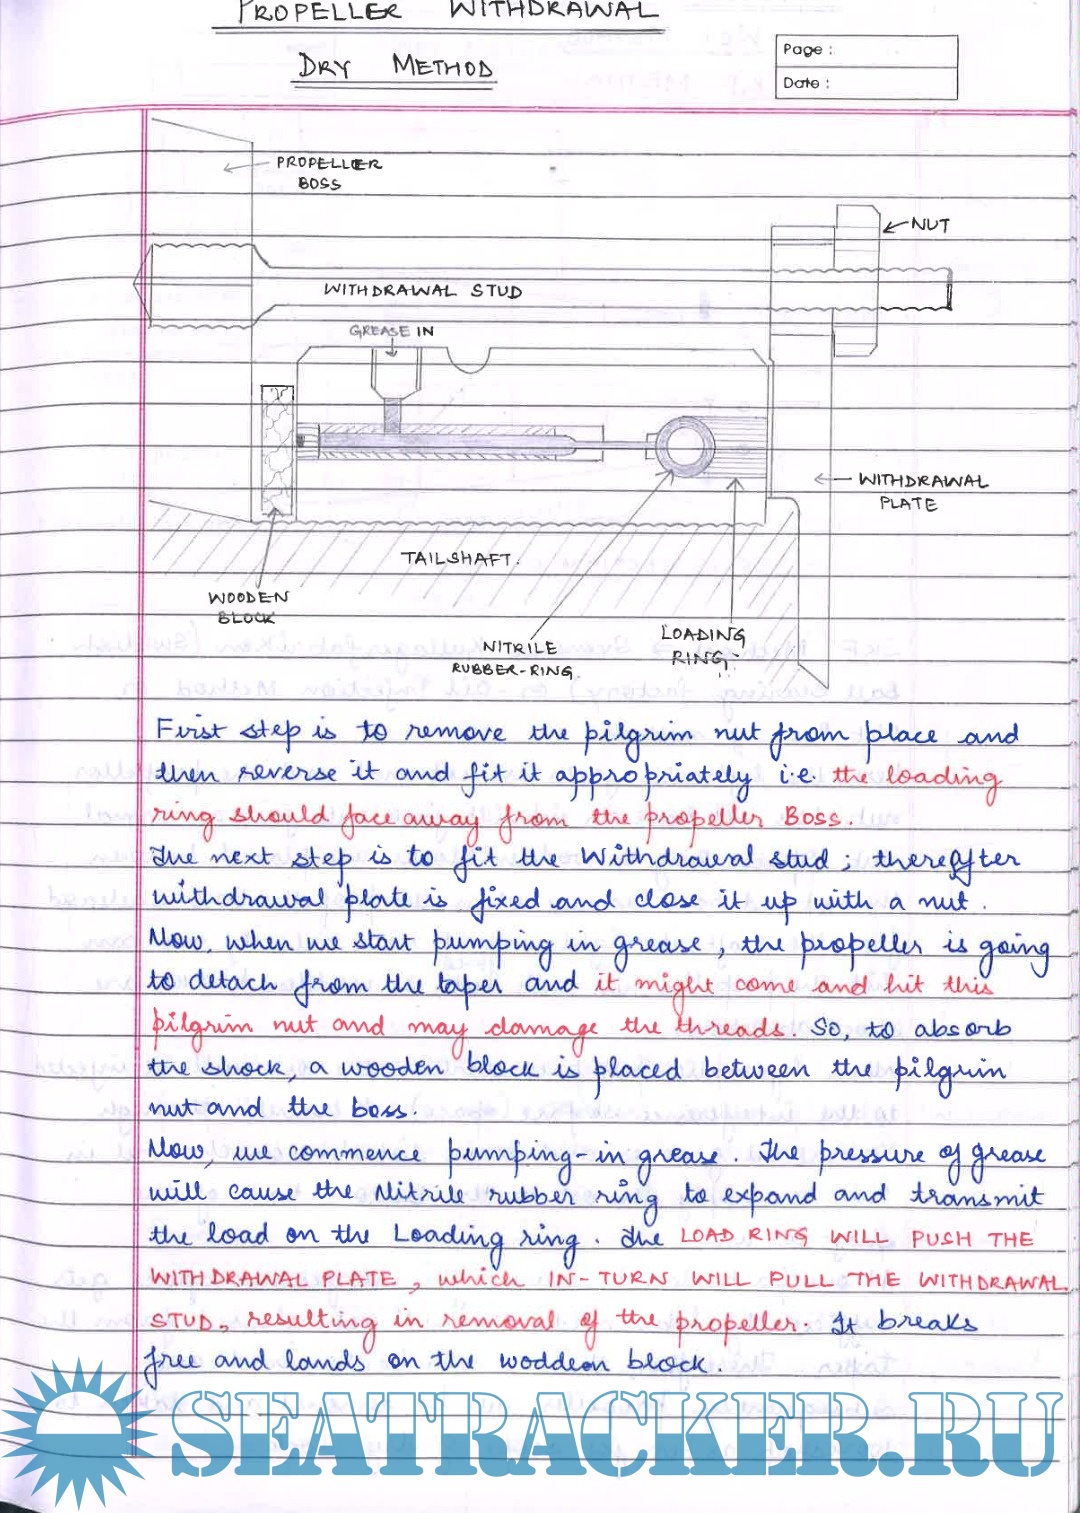 PROPELLER WITHDRAWAL
DRY METHOD
Page :
Date :
PROPELLER
BOSS
NUT
WITHDRAWAL STUD
GREASE IN
WITHDRAWAL
PLATE
TAILSHAFT.
WOODEN
BLOCK
NITRILE
RUBBER-RING
LOADING
RING.
First step is to remove the pilgrim nut from place and
then reverse it and fit it appropriately i.e. the loading
ring should face away from the propeller Boss.
The next step is to fit the Withdrawal stud ; thereafter
withdrawal plate is fixed and close it up with a nut.
Now, when we start pumping in grease, the propeller is going
to detach from the taper and it might come and hit this
pilgrim nut and may damage the threads. So, to absorb
the shock, a wooden block is placed between the pilgrim
nut and the boss.
Now, we commence pumping-in grease. The pressure of grease
will cause the Nitrile rubber ring to expand and transmit
the load on the Loading ring. The LOAD RING WILL PUSH THE
WITHDRAWAL PLATE, which IN-TURN WILL PULL THE WITHDRAWAL
STUD, resulting in removal of the propeller. It breaks
free and lands on the woddeon block.
SEATRACKER.RU